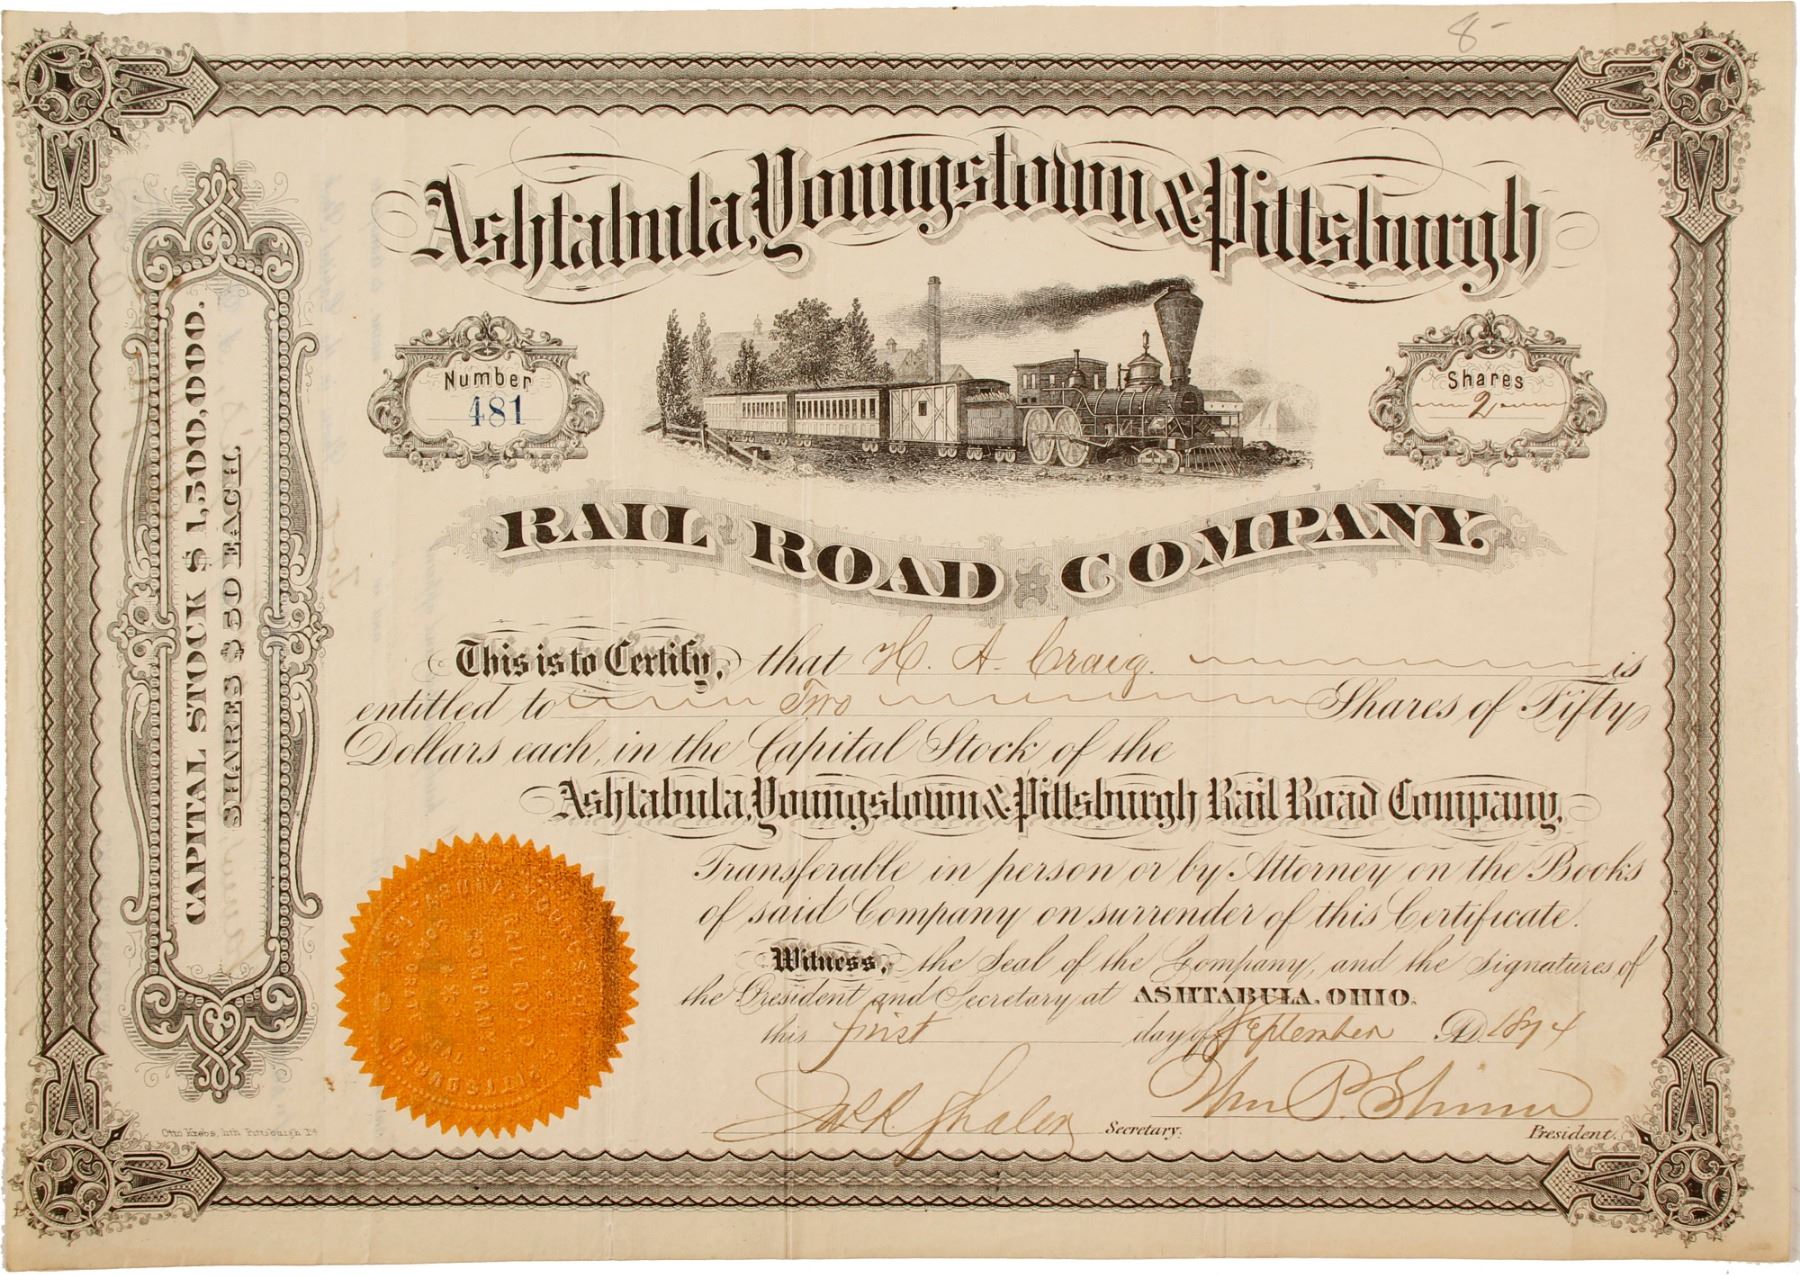 8-
Ashtabula, Youngstown & Pittsburgh
Number
481
Shares
2
RAIL ROAD COMPANY
CAPITAL STOCK $1,500,000.
SHARES $50 EACH.
This is to Certify, that H. A. Craig. is
entitled to Two Shares of Fifty
Dollars each, in the Capital Stock of the
Ashtabula, Youngstown & Pittsburgh Rail Road Company,
Transferable in person or by Attorney on the Books
of said Company on surrender of this Certificate.
Witness, the Seal of the Company, and the Signatures of
the President and Secretary at ASHTABULA, OHIO.
this first day of September A.D. 1874
Secretary.
Wm P. Shinn
President.
Otto Krebs, lith Pittsburgh Pa